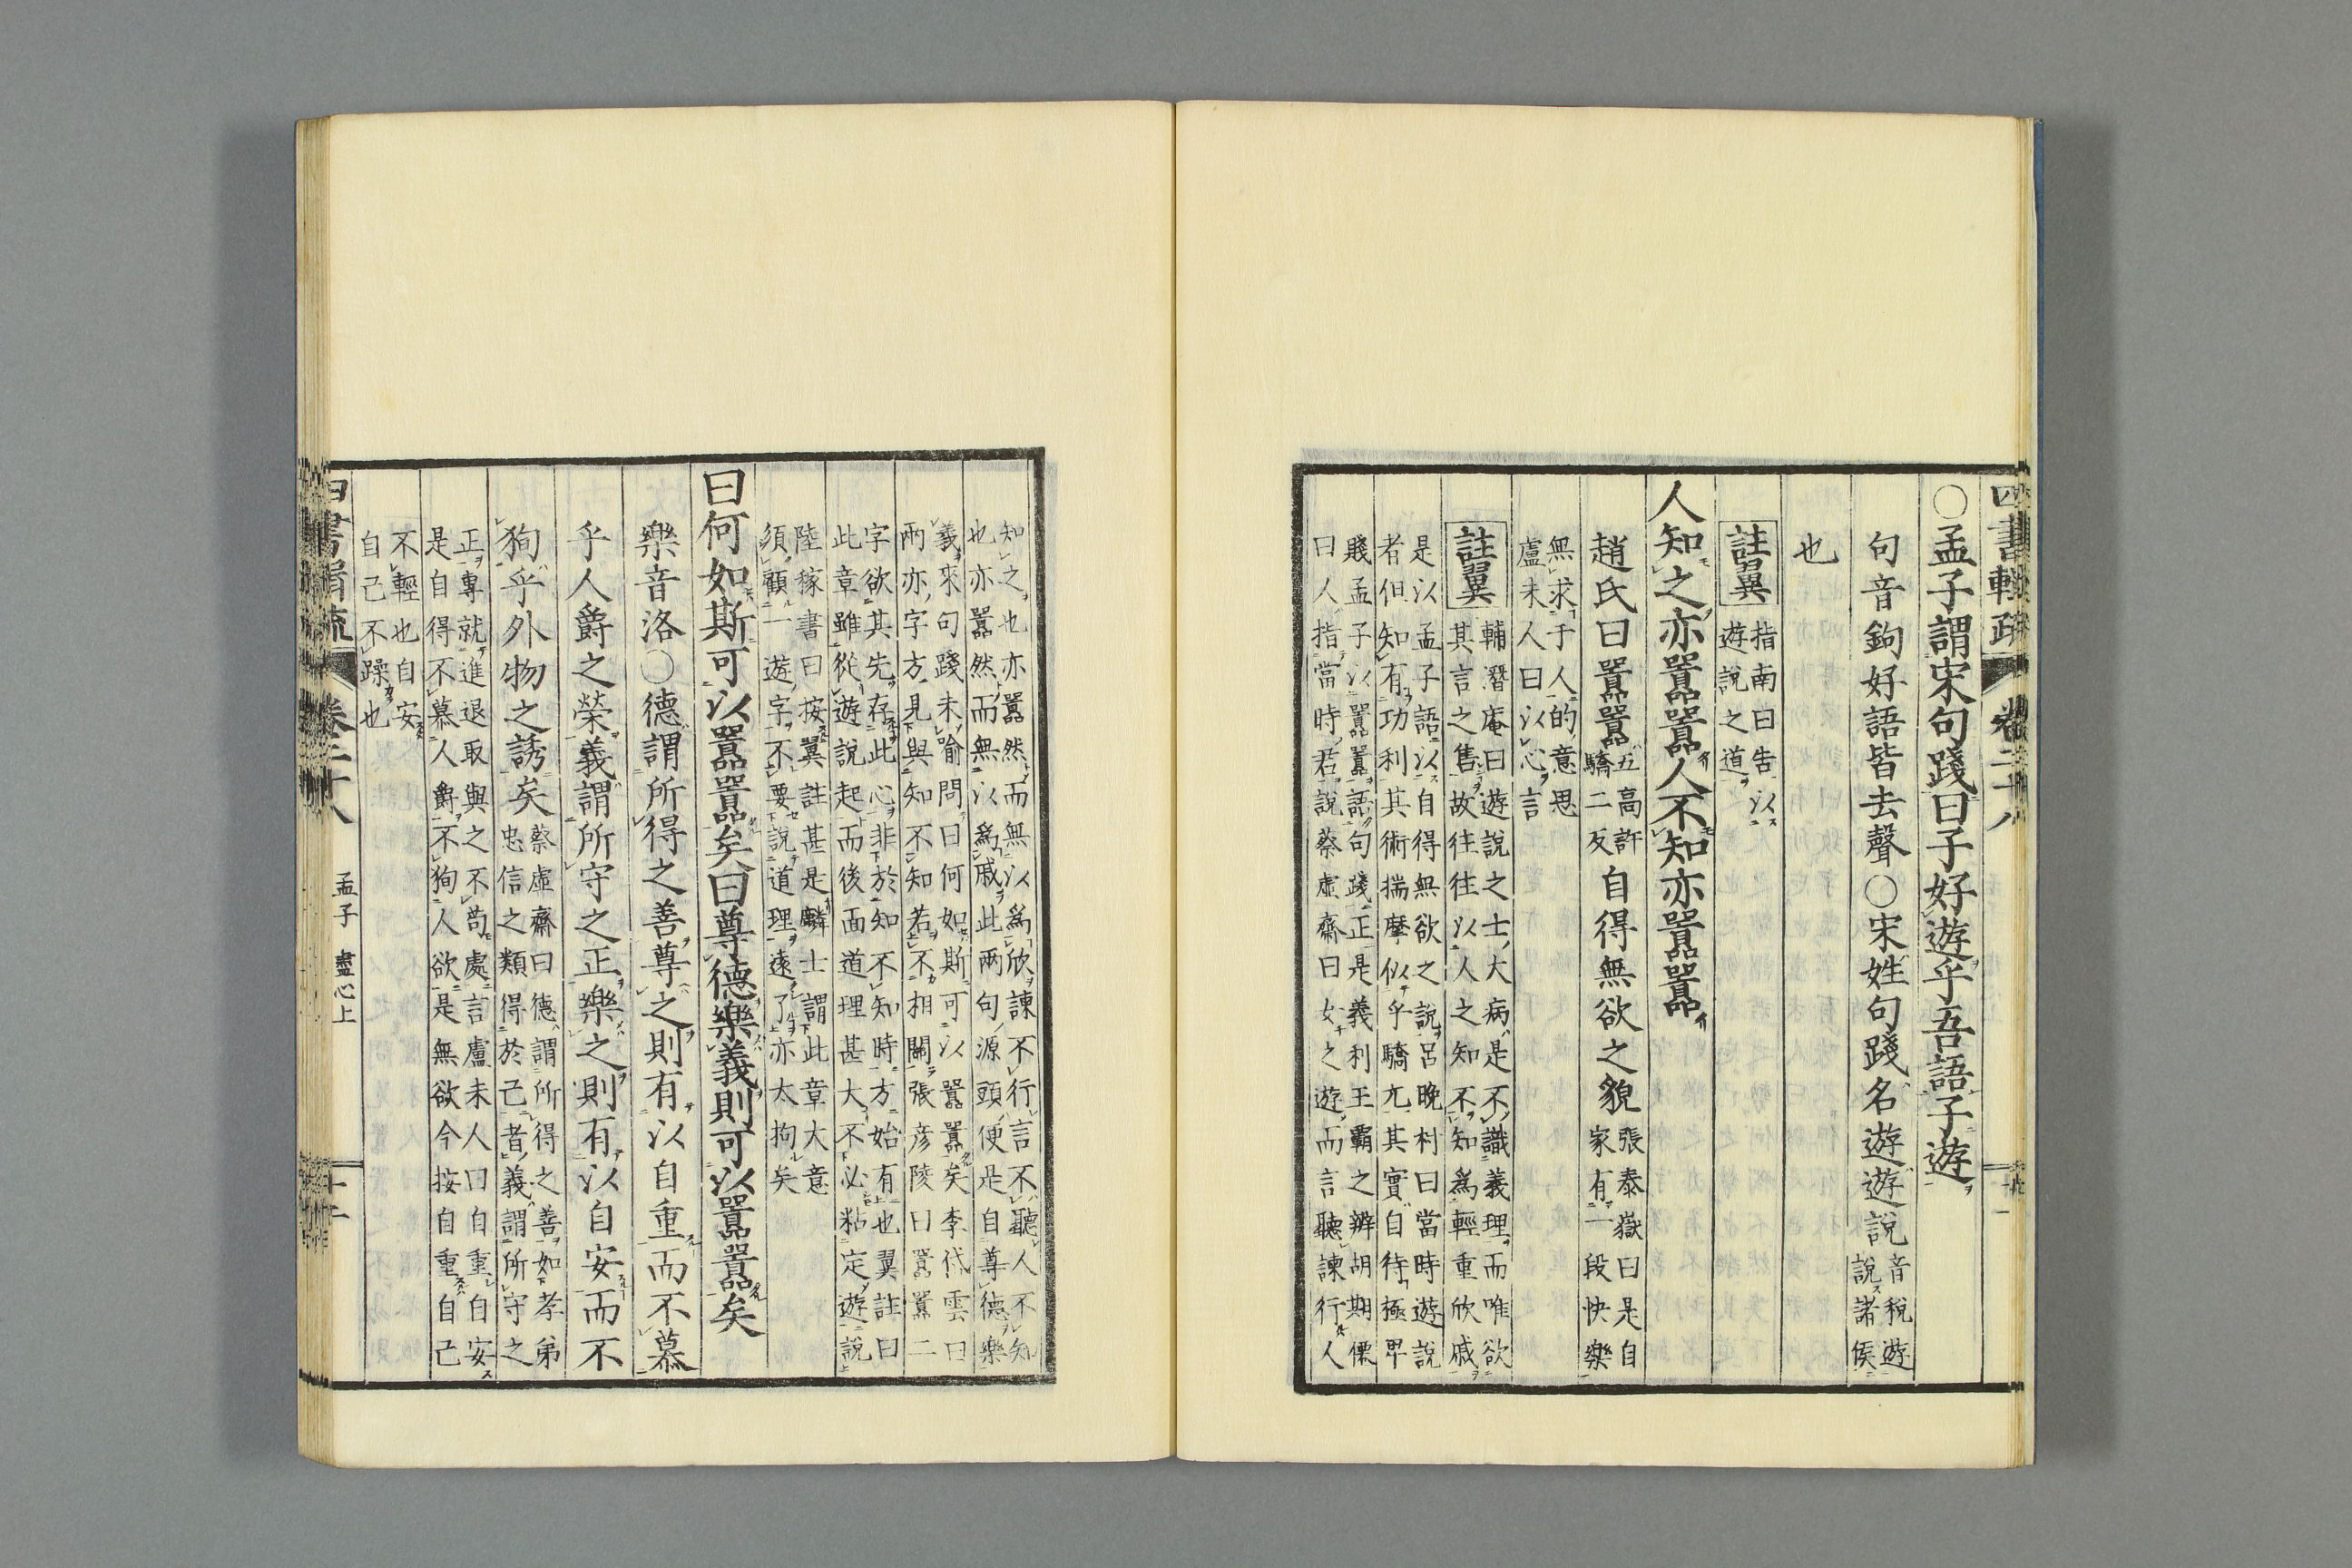 四書輯疏 卷二十八
○孟子謂宋句踐曰子好遊乎吾語子遊
句音鉤好語皆去聲○宋姓句踐名遊遊說
音稅遊
說諸侯
也
註翼
指南曰告以
遊說之道
人知之亦囂囂人不知亦囂囂
趙氏曰囂囂
五高許
驕二反
自得無欲之貌
張泰嶽曰是自
家有一段快樂
無求于人的意思
盧未人曰以心言
註翼
輔潛庵曰遊說之士大病是不識義理而唯欲
其言之售故往往以人之知不知為輕重欣戚
是以孟子語以自得無欲之說呂晚村曰當時遊說
者但知有功利其術揣摩似乎驕亢其實自待極卑
賤孟子以囂囂語句踐正是義利王霸之辨胡期僊
曰人指當時君說蔡虛齋曰女之遊而言聽諫行人
知之也亦囂然而無以為欣諫不行言不聽人不知
也亦囂然而無以為戚此兩句源頭便是自尊德樂
義來句踐未喻問曰何如斯可以囂囂矣李岱雲曰
兩亦字方見與知不知若不相關張彦陵曰囂囂二
字欲其先存此心非於知不知時方始有也翼註曰
此章雖從遊說起而後面道理甚大不必粘定遊說
陸稼書曰按翼註甚是麟士謂此章大意
須顧一遊字不要說道理遠了亦太拘矣
曰何如斯可以囂囂矣曰尊德樂義則可以囂囂矣
樂音洛○德謂所得之善尊之則有以自重而不慕
乎人爵之榮義謂所守之正樂之則有以自安而不
狥乎外物之誘矣
蔡虛齋曰德謂所得之善如孝弟
忠信之類得於己者義謂所守之
正專就進退取與之不苟處言盧未人曰自重自安
是自得不慕人爵不狥人欲是無欲今按自重自己
不輕也自安
自己不躁也
四書輯疏 卷二十八 孟子 盡心上